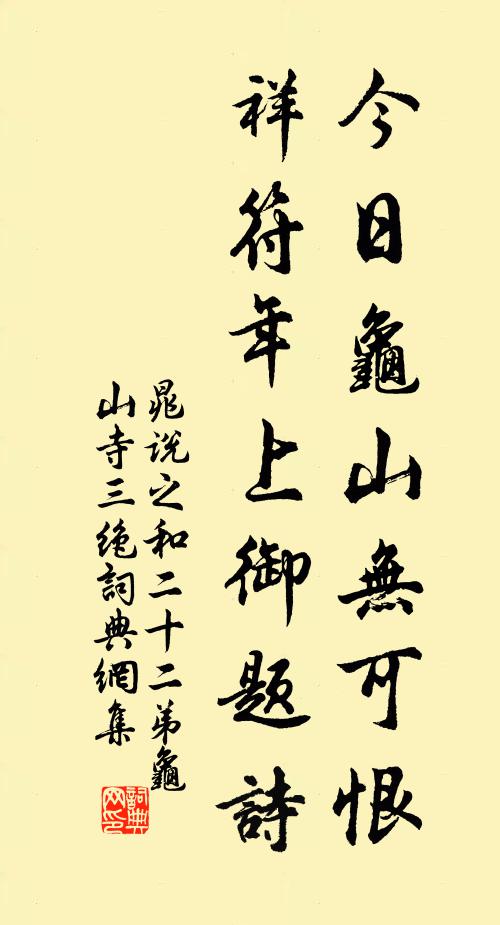 今日龜山無可恨
祥符年上御题詩
晁说之和二十二弟龜
山寺三绝詞典網集
詞典网印